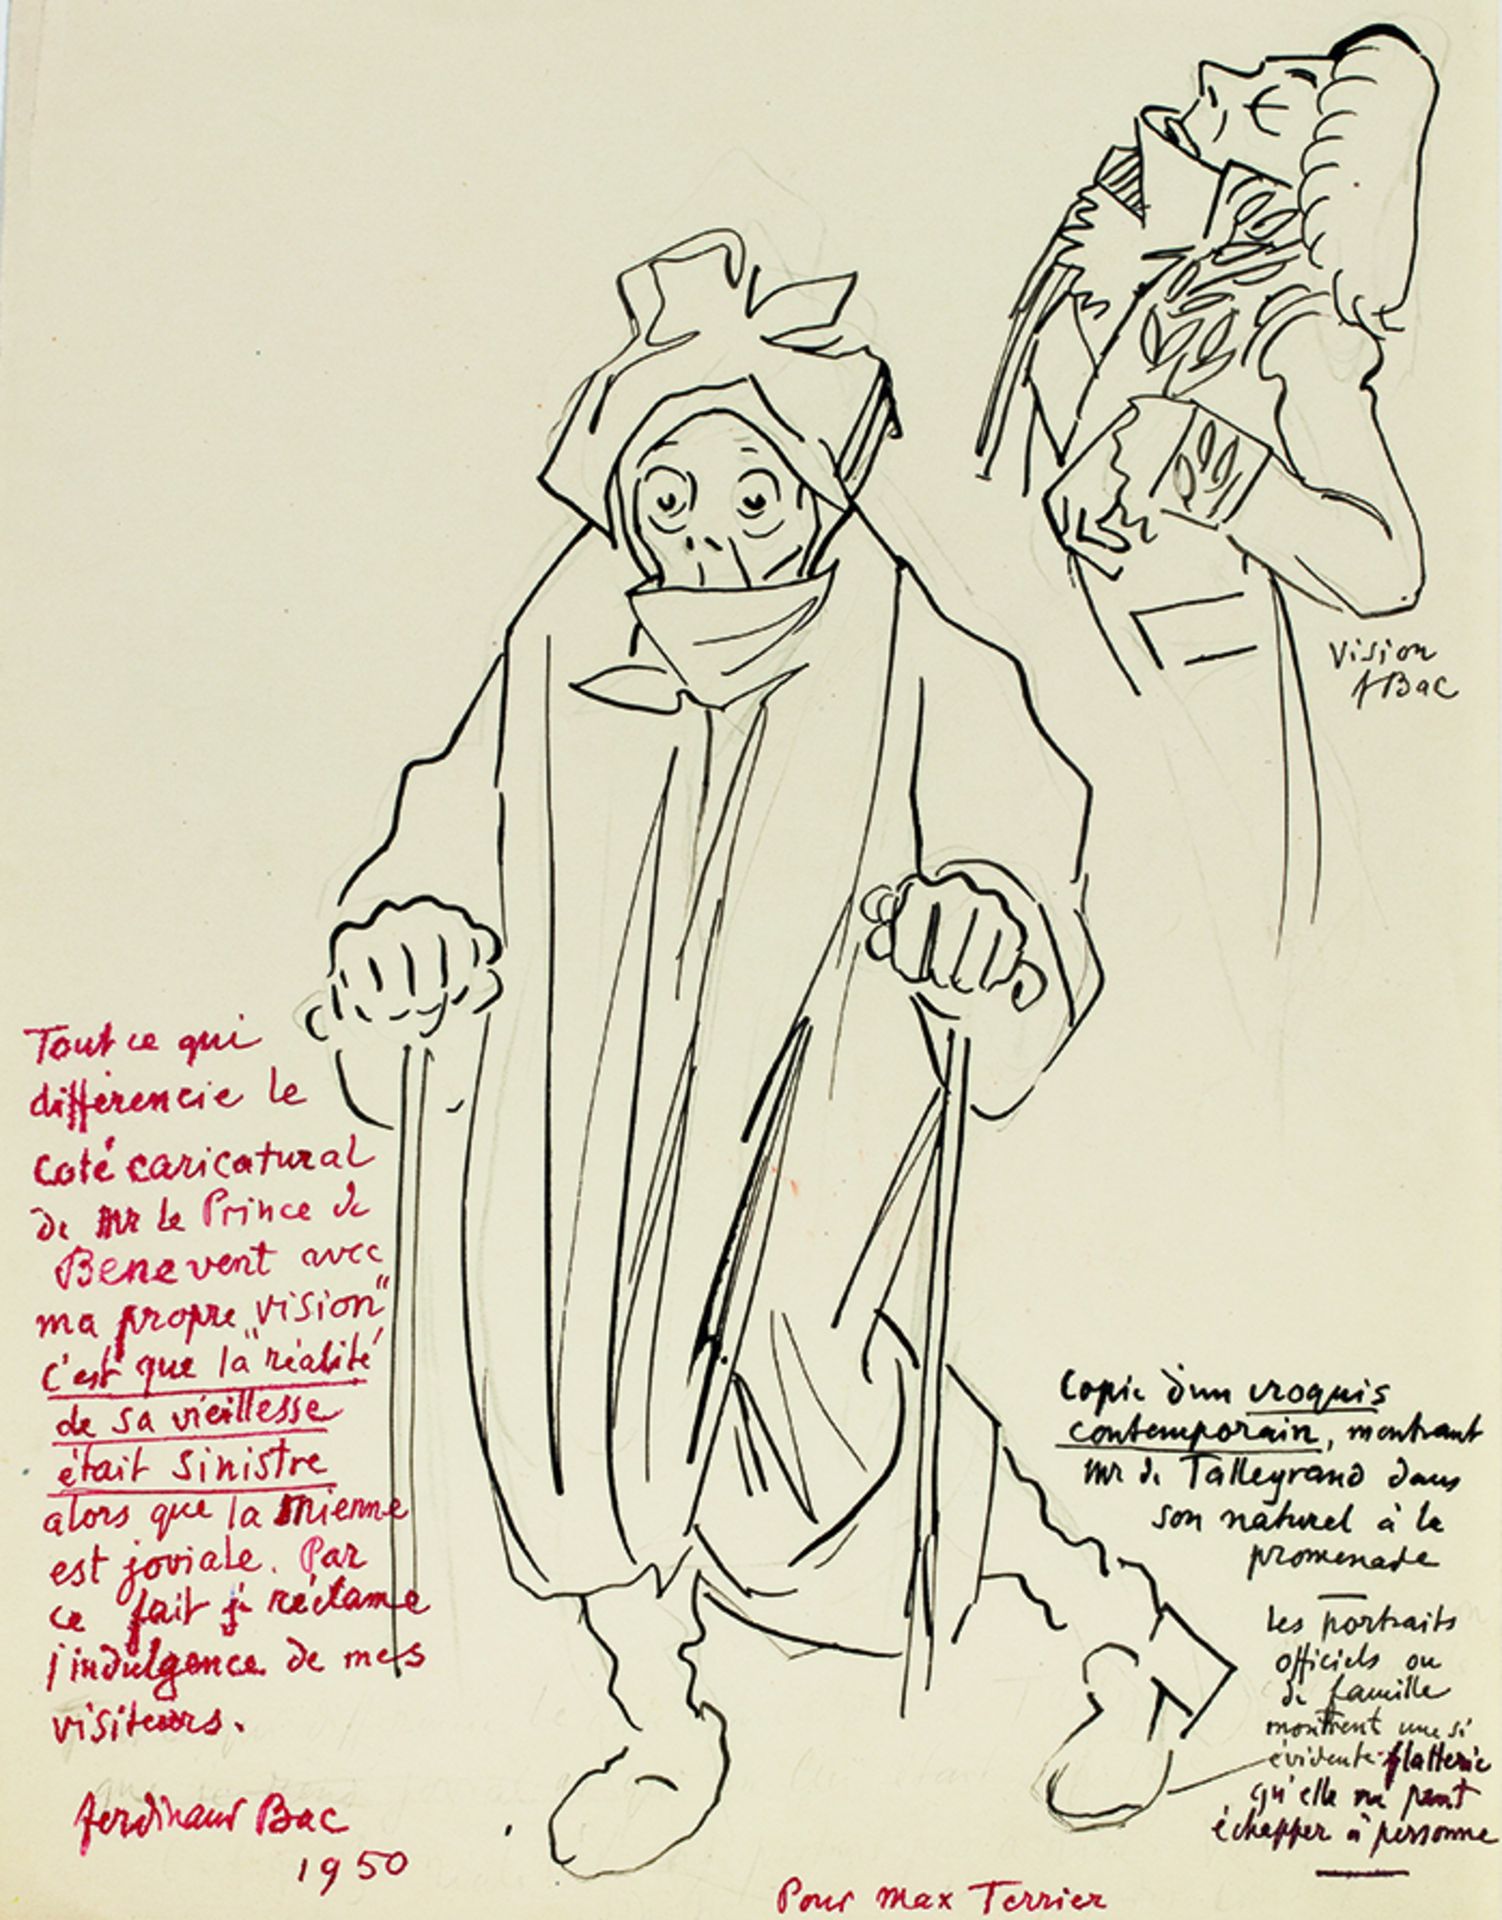 Vision
FBac
Tout ce qui
différencie le
coté caricatural
de Mr le Prince de
Benevent avec
ma propre "vision"
c'est que la "réalité
de sa vieillesse
était sinistre
alors que la mienne
est joviale. Par
ce fait je réclame
l'indulgence de mes
visiteurs.
Ferdinand Bac
1950
Copie d'un croquis
contemporain, montrant
Mr de Talleyrand dans
son naturel à la
promenade
Les portraits
officiels ou
de famille
montrent une si
évidente flatterie
qu'elle ne peut
échapper à personne
Pour Max Terrier